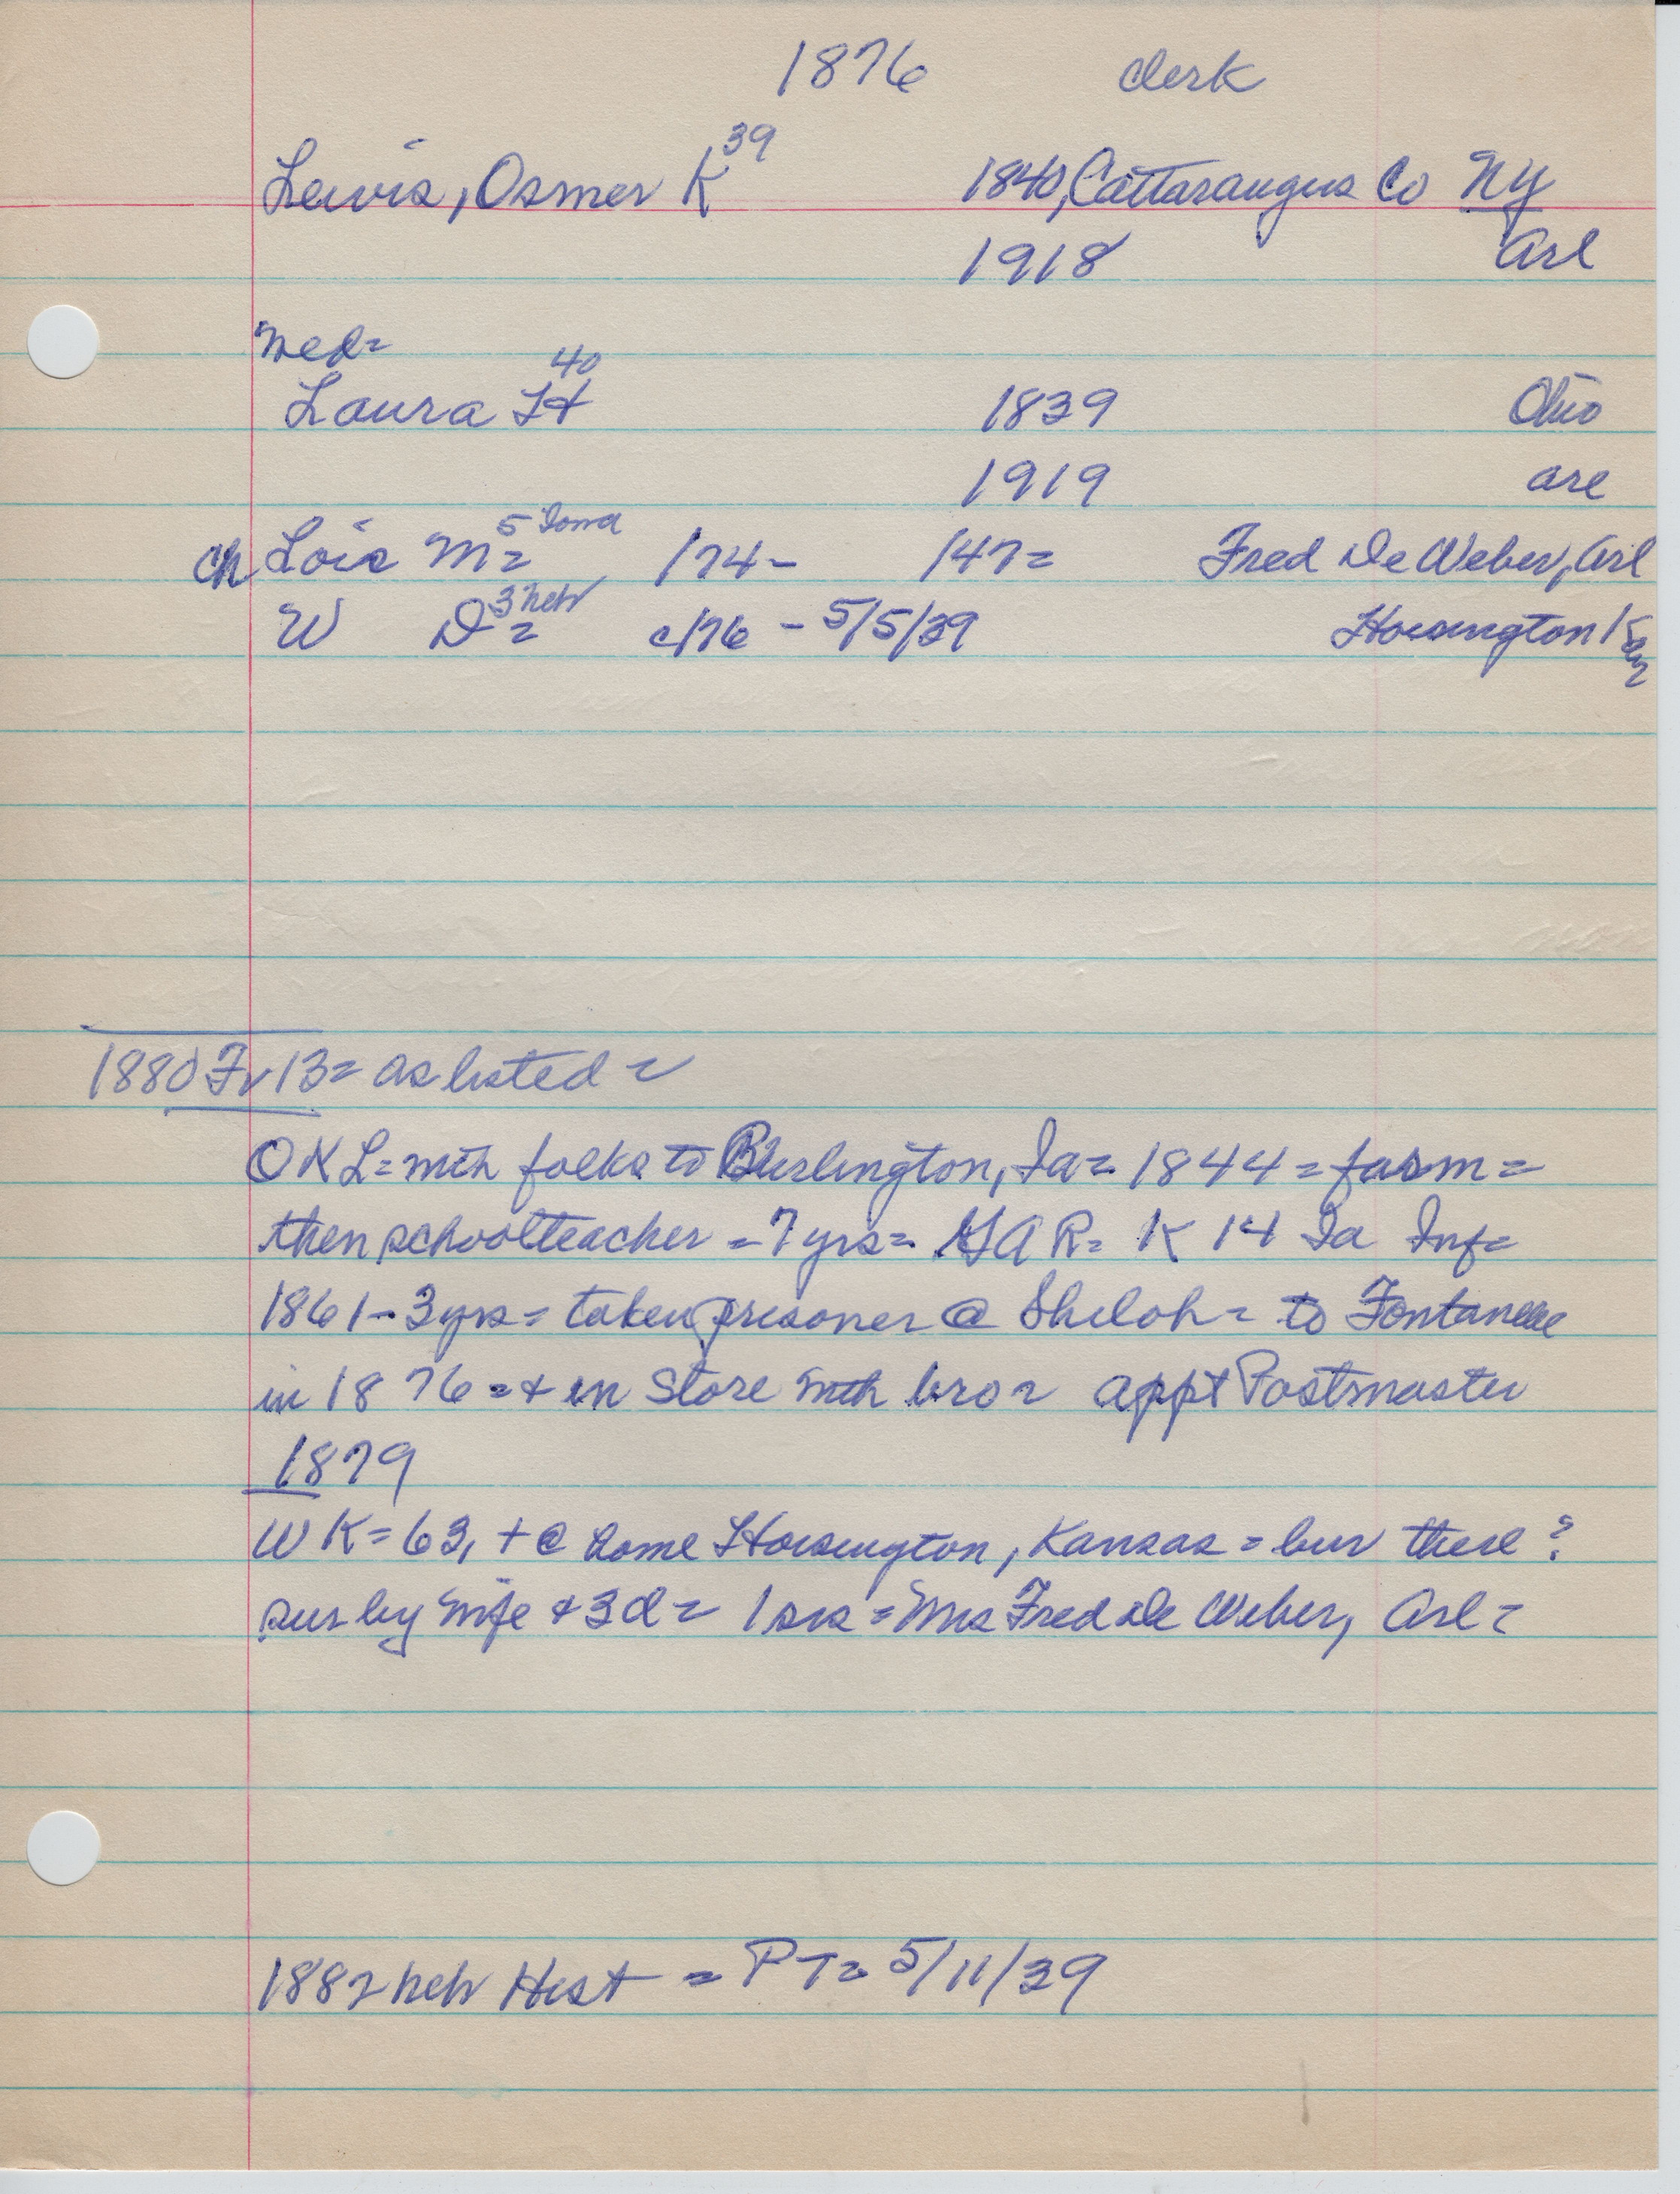 1876 clerk
Lewis, Osmer K 39 1840, Cattaraugus Co NY
1918 Arl
Wed=
Laura H 40 1839 Ohio
1919 Arl
ch Lois M= 5 Iowa 174- 147= Fred De Weber, Arl
W D= 3 neb c/76 - 5/5/39 Hoisington Kan
1880 Fv 13= as listed =
O K L= with folks to Burlington, Ia= 1844= farm=
then schoolteacher = 7 yrs= GAR= K 14 Ia Inf=
1861- 3yrs= taken prisoner @ Shiloh= to Fontanelle
in 1876 =+ in store with bro= appt Postmaster
1879
W K= 63, + @ home Hoisington, Kansas = bur there?
sur by wife + 3d= 1 sis= Mrs Fred De Weber, Arl=
1882 neb Hist = PT= 5/11/39